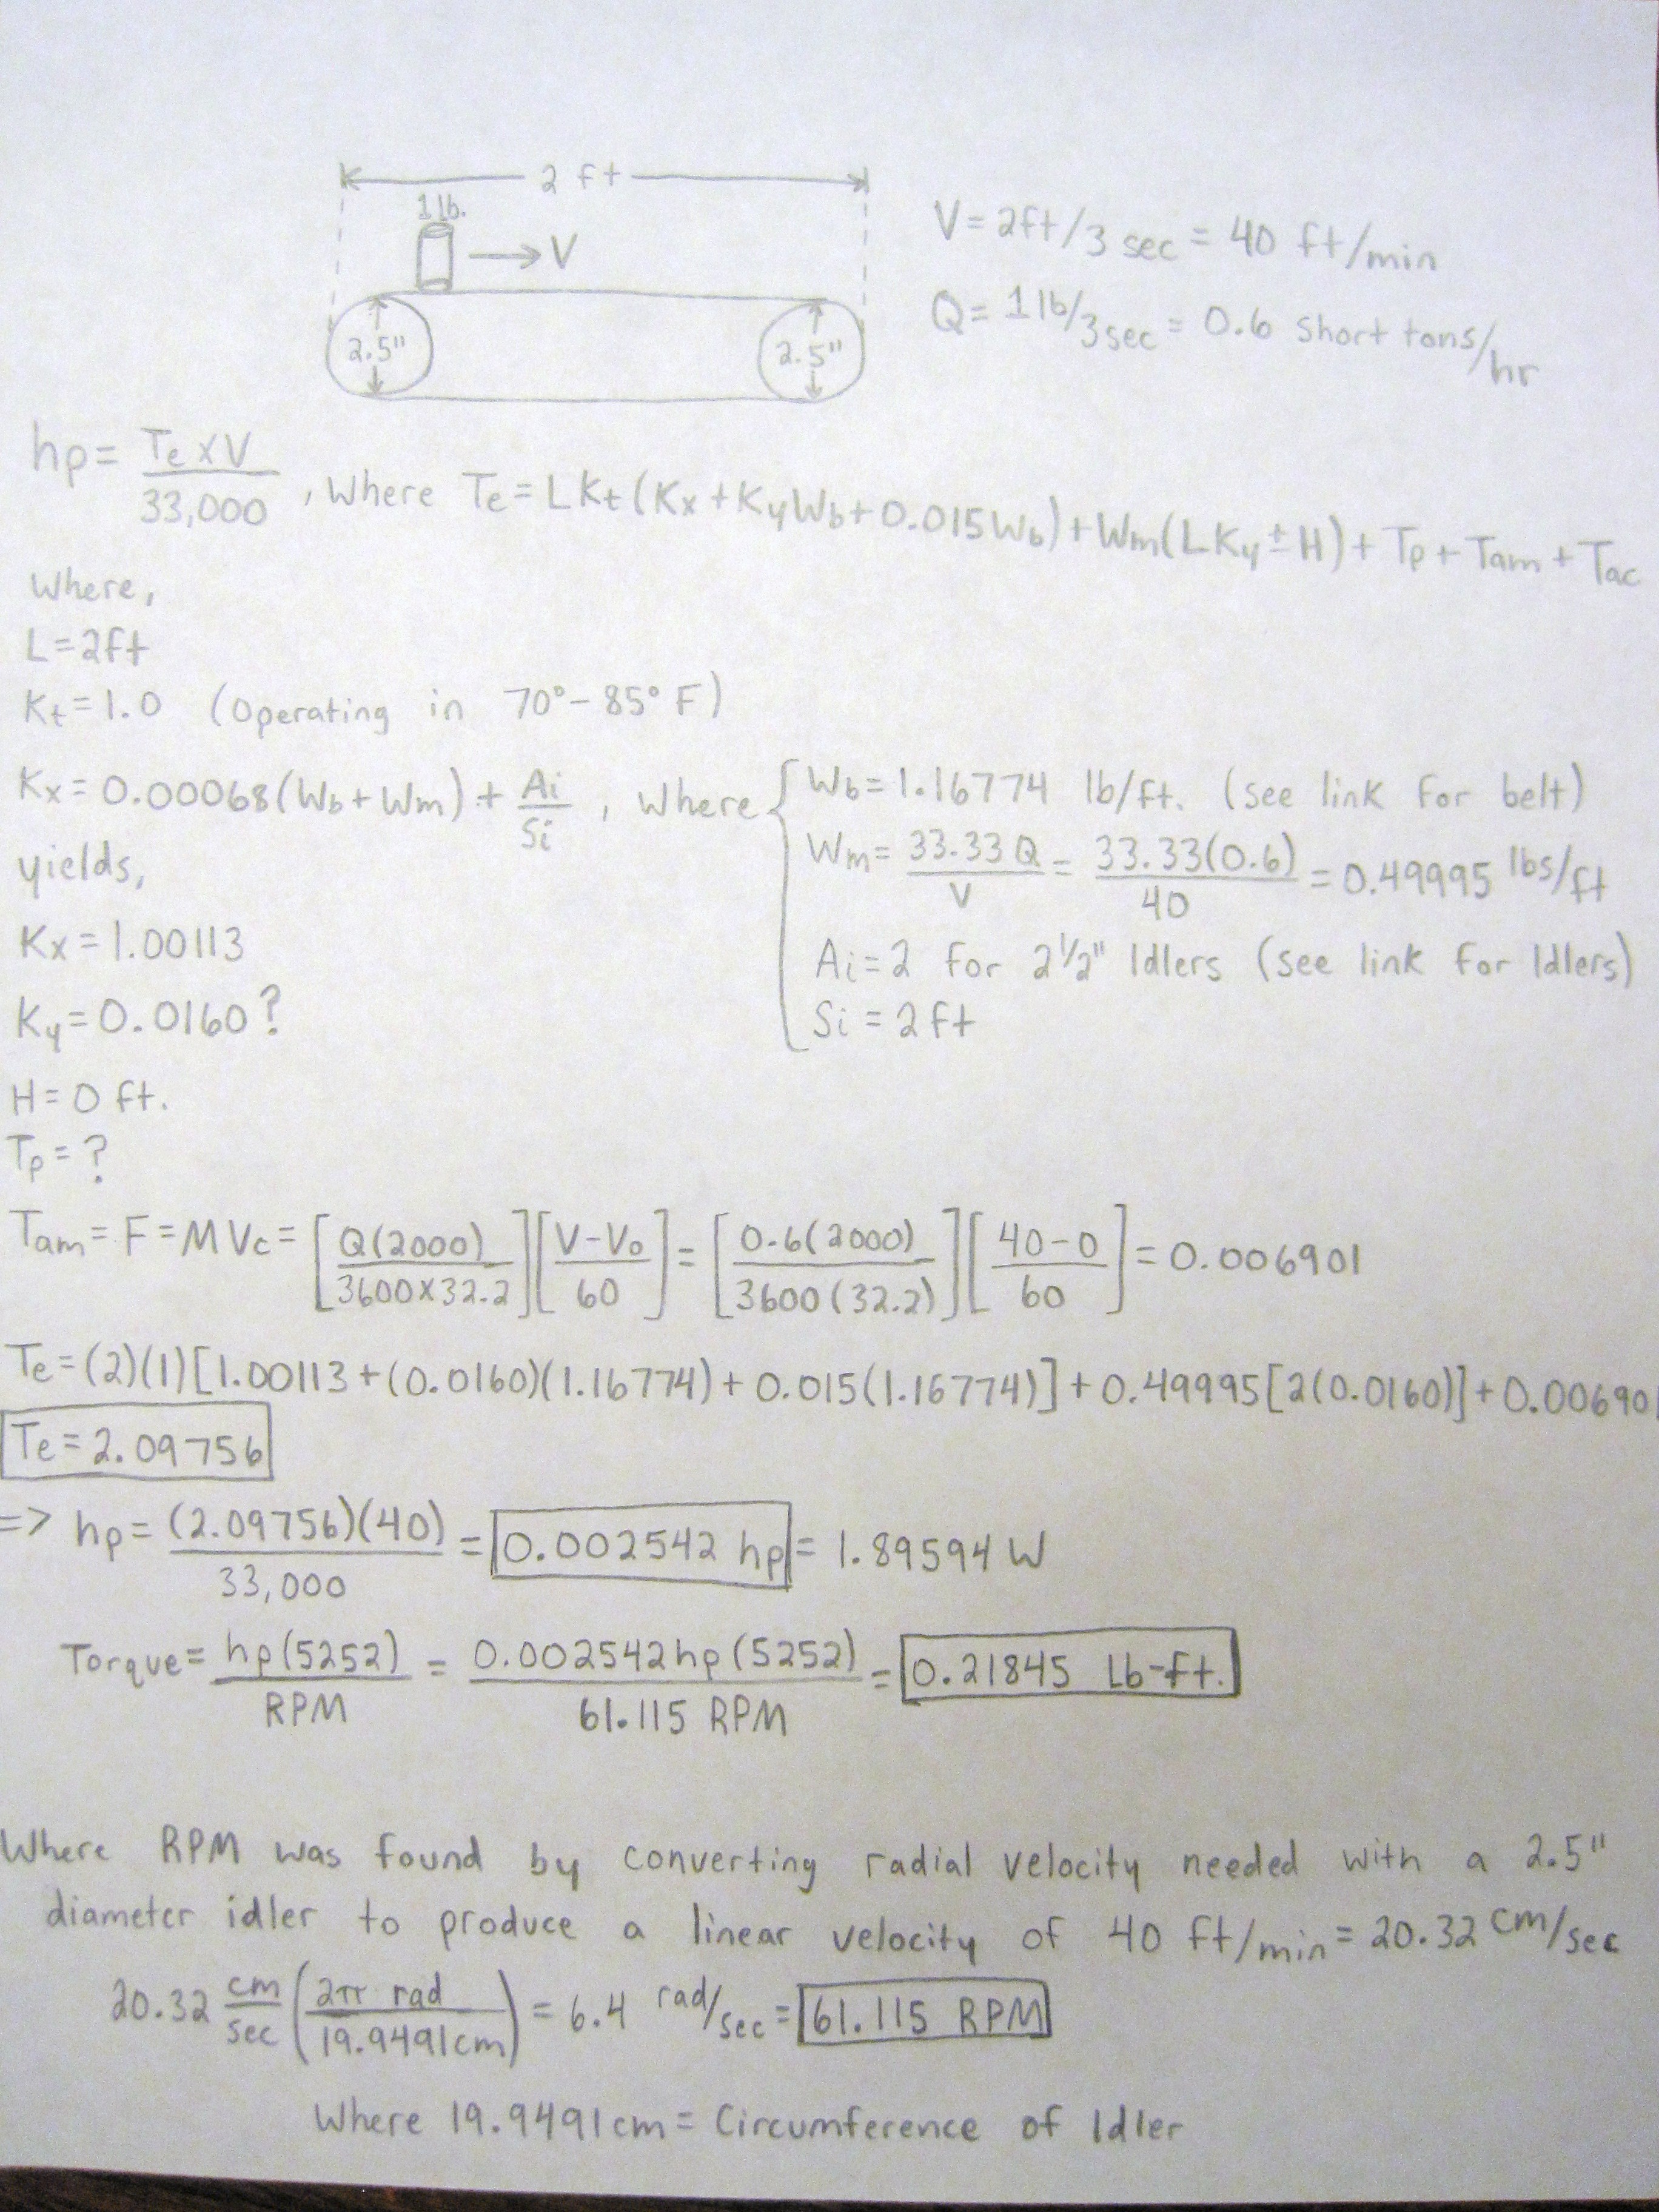 2 ft
1 lb.
V
2.5" 2.5"
V = 2ft/3 sec = 40 ft/min
Q = 1 lb/3sec = 0.6 short tons/hr
hp = Te x V / 33,000 , Where Te = L Kt (Kx + KyWb + 0.015 Wb) + Wm(LKy ± H) + Tp + Tam + Tac
Where,
L = 2ft
Kt = 1.0 (Operating in 70° - 85° F)
Kx = 0.00068 (Wb + Wm) + Ai/Si , where
Wb = 1.16774 lb/ft. (see link for belt)
Wm = 33.33 Q / V = 33.33(0.6) / 40 = 0.49995 lbs/ft
Ai = 2 for 2 1/2" Idlers (see link for Idlers)
Si = 2 ft
yields,
Kx = 1.00113
Ky = 0.0160 ?
H = 0 ft.
Tp = ?
Tam = F = M Vc = [Q(2000) / 3600 x 32.2] [V - Vo / 60] = [0.6(2000) / 3600 (32.2)] [40 - 0 / 60] = 0.006901
Te = (2)(1)[1.00113 + (0.0160)(1.16774) + 0.015(1.16774)] + 0.49995[2(0.0160)] + 0.006901
Te = 2.09756
=> hp = (2.09756)(40) / 33,000 = 0.002542 hp = 1.89594 W
Torque = hp (5252) / RPM = 0.002542hp (5252) / 61.115 RPM = 0.21845 Lb-ft.
Where RPM was found by converting radial velocity needed with a 2.5"
diameter idler to produce a linear velocity of 40 ft/min = 20.32 cm/sec
20.32 cm/sec (2π rad / 19.9491cm) = 6.4 rad/sec = 61.115 RPM
Where 19.9491cm = Circumference of Idler